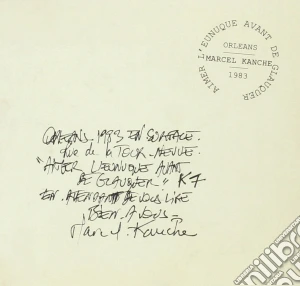 AIMER L'EUNUQUE AVANT DE GLAUQUER
ORLEANS
MARCEL KANCHE
1983
ORLEANS. 1983 EN SURFACE.
Rue de la TOUR NEUVE.
"AIMER L'EUNUQUE AVANT
DE GLAUQUER" K7
EN ATTENDANT DE VOUS LIRE
BIEN A VOUS =
Marcel. Kanche